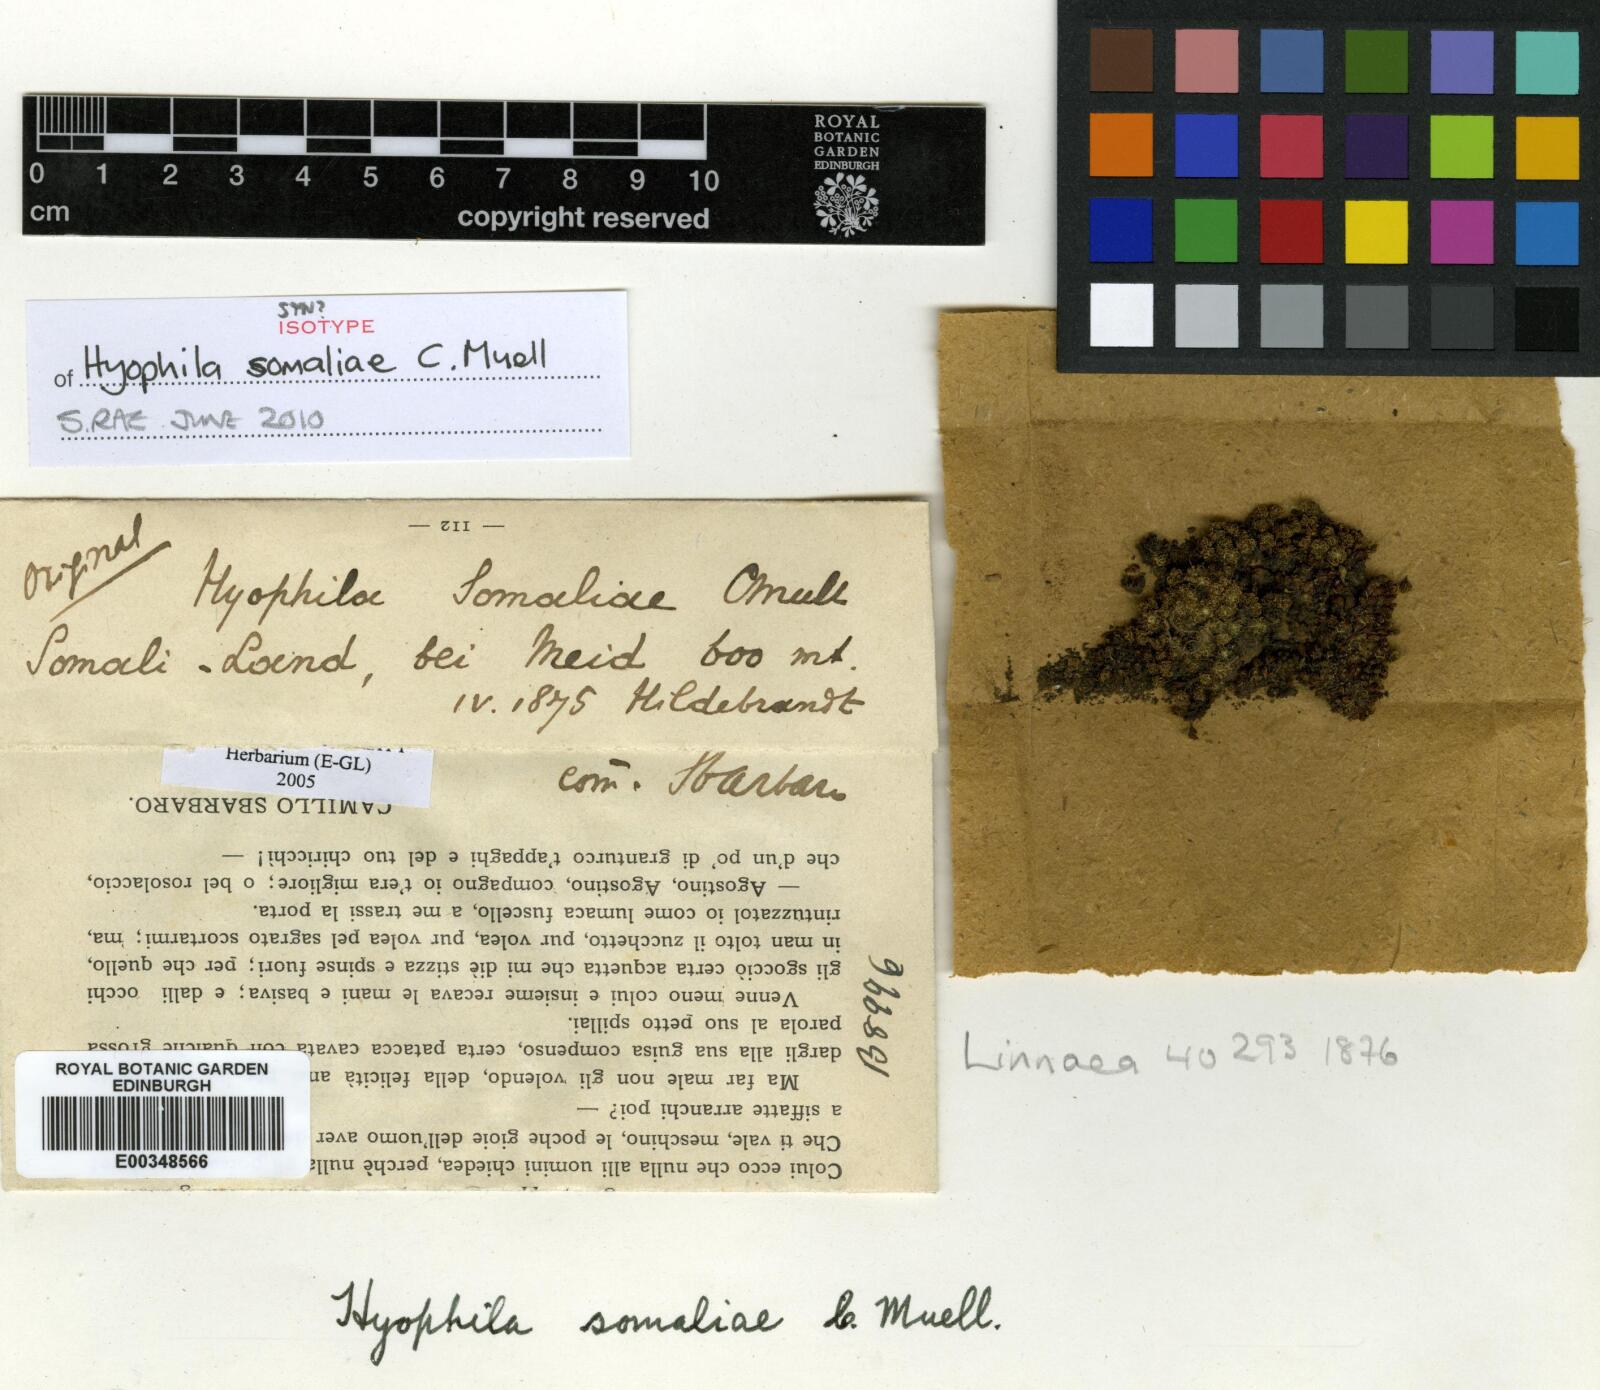 0 1 2 3 4 5 6 7 8 9 10
cm
copyright reserved
ROYAL
BOTANIC
GARDEN
EDINBURGH
SYN?
ISOTYPE
of Hyophila somaliae C. Muell
S. RAE JUNE 2010
— 112 —
Original
Hyophila Somaliae CMull
Somali-Land, bei Meid 600 mt.
IV. 1875 Hildebrandt
com. Sbarbaro
Herbarium (E-GL)
2005
CAMILLO SBARBARO.
che d'un po' di granturco t'appaghi e del tuo chiricchi! —
— Agostino, Agostino, compagno io t'era migliore; o bel rosolaccio,
rintuzzatol io come lumaca fuscello, a me trassi la porta.
in man tolto il zucchetto, pur volea, pur volea pel sagrato scortarmi; ma,
gli sgocciò certa acquetta che mi diè stizza e spinse fuori; per che quello,
Venne meno colui e insieme recava le mani e basiva; e dalli occhi
parola al suo petto spillai.
dargli alla sua guisa compenso, certa patacca cavata con qualche grossa
Ma far male non gli volendo, della felicità
a siffatte arranchi poi? —
Che ti vale, meschino, le poche gioie dell'uomo aver
Colui ecco che nulla alli uomini chiedea, perchè nulla
ROYAL BOTANIC GARDEN
EDINBURGH
E00348566
Linnaea 40 293 1876
Hyophila somaliae C. Muell.